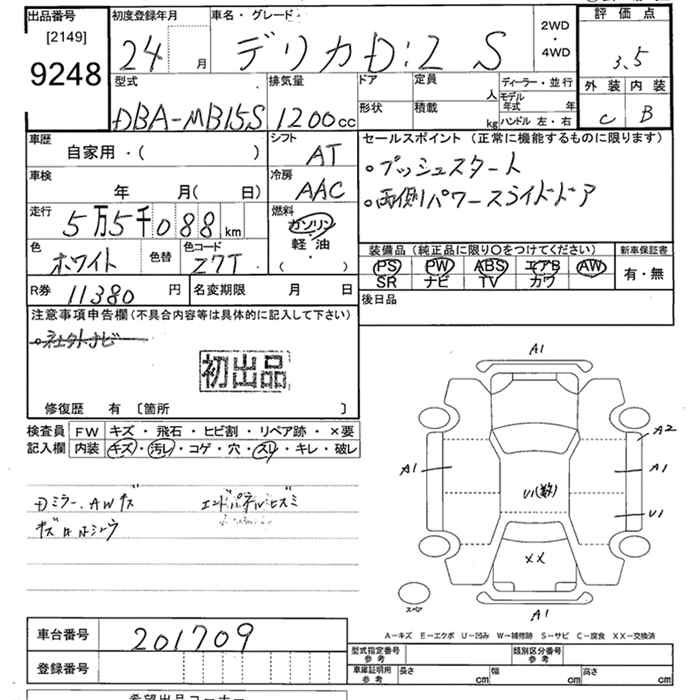 出品番号
[2149]
9248
初度登録年月
24 月
車名・グレード
デリカD:2 S
2WD
・
4WD
評価点
3.5
外装 内装
C B
型式
DBA-MB15S
排気量
1200cc
ドア
形状
定員
人
積載
kg
ディーラー・並行
モデル年式 年
ハンドル 左・右
車歴
自家用・( )
シフト
AT
車検
年 月( 日)
冷房
AAC
走行
5万5千088km
燃料
ガソリン
軽油
・
( )
色
ホワイト
色替
色コード
Z7T
セールスポイント(正常に機能するものに限ります)
。プッシュスタート
。両側パワースライドドア
装備品(純正品に限り○をつけてください)
PS PW ABS エアB AW
SR ナビ TV カワ
新車保証書
有・無
R券
11380円
名変期限 月 日
後日品
注意事項申告欄(不具合内容等は具体的に記入して下さい)
初出品
修復歴 有 〔箇所 〕
検査員
記入欄
FW キズ・飛石・ヒビ割・リペア跡・×要
内装 キズ・汚レ・コゲ・穴・スレ・キレ・破レ
Dミラー、AWキズ
エンドパネルヒズミ
A1
A2
A1
A1
U1(数)
U1
XX
スペア
A1
A-キズ E-エクボ U-凹み W-補修跡 S-サビ C-腐食 XX-交換済
車台番号
201709
登録番号
型式指定番号
参考
類別区分番号
参考
車庫証明用
参考
長さ cm
幅 cm
高さ cm
希望出品コーナー